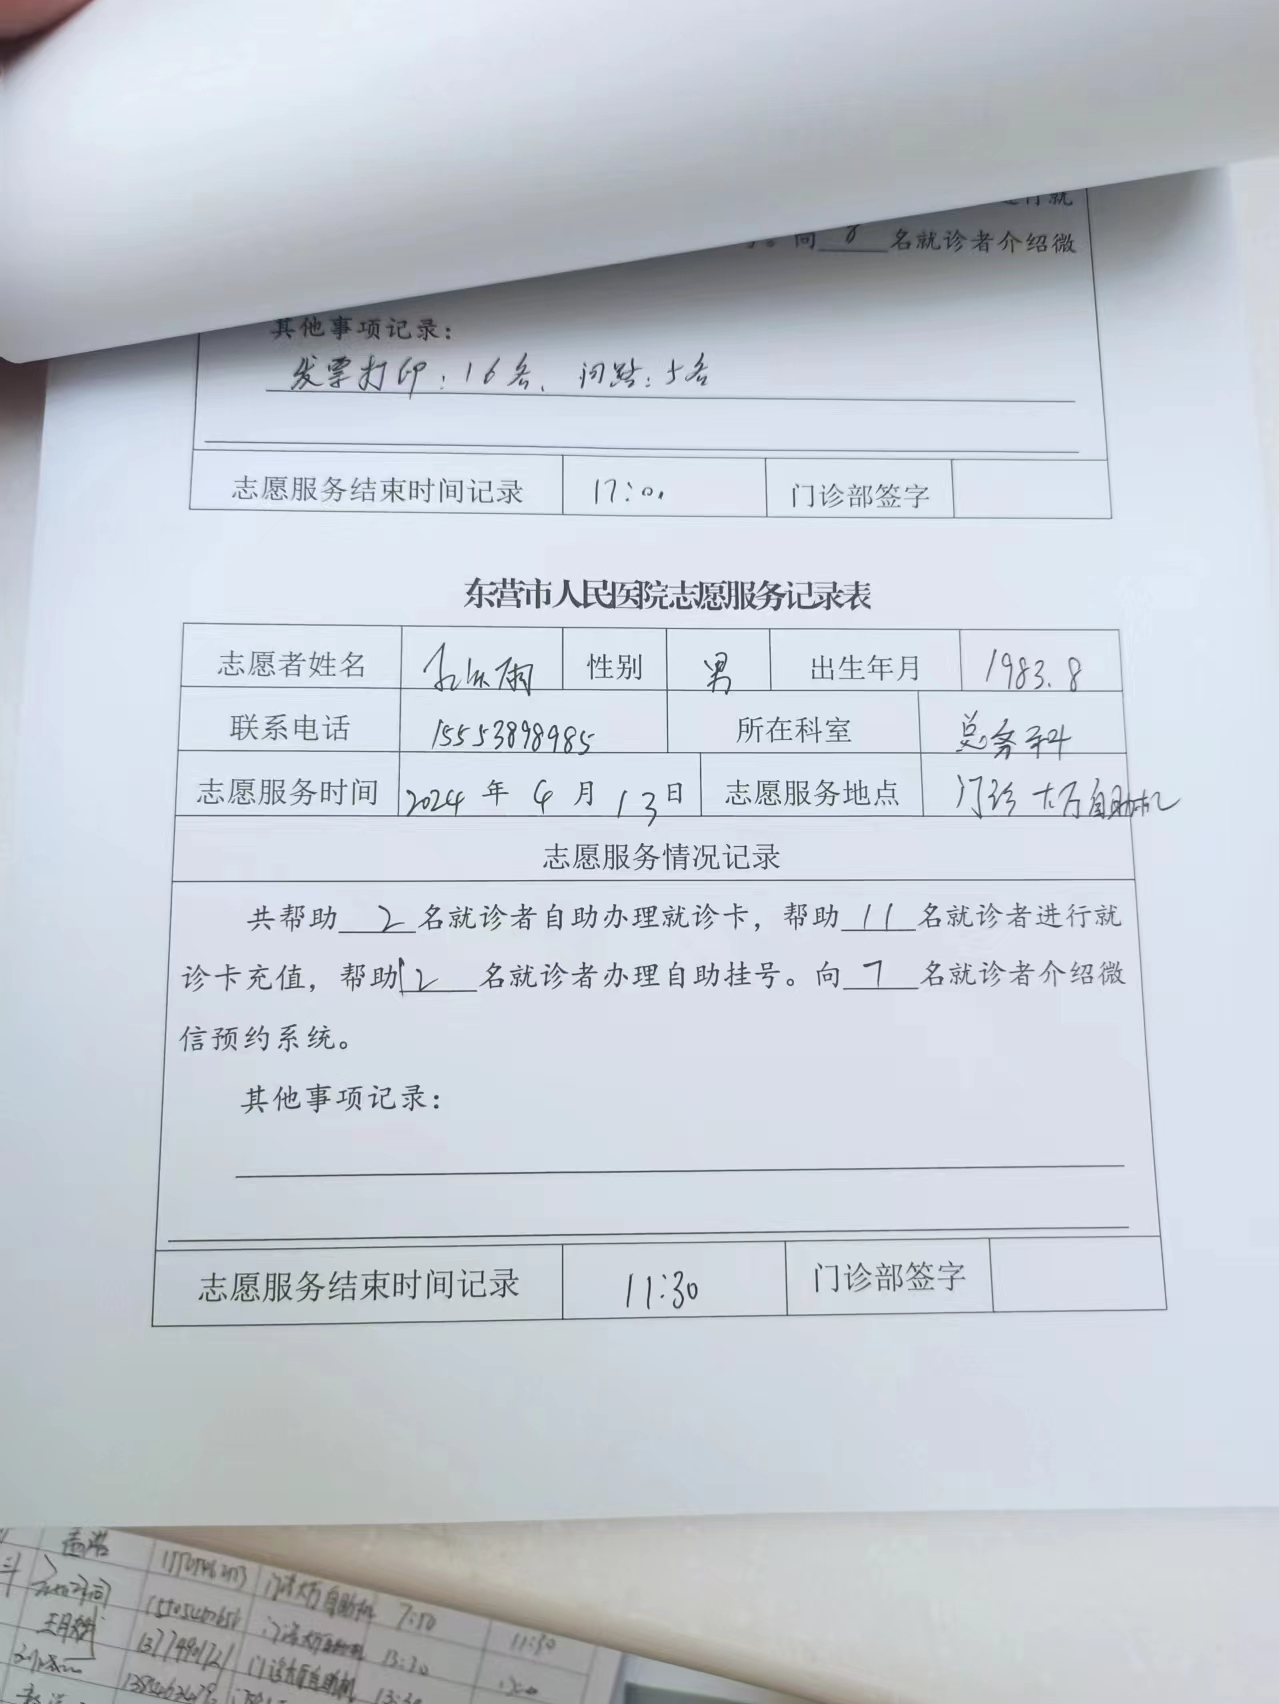 行就
名就诊者介绍微
其他事项记录：
发票打印：16名、问路：5名
志愿服务结束时间记录 17:00 门诊部签字
东营市人民医院志愿服务记录表
志愿者姓名 雨 性别 男 出生年月 1983.8
联系电话 15553898985 所在科室 总务科
志愿服务时间 2024年4月13日 志愿服务地点 门诊大厅自助机
志愿服务情况记录
共帮助2名就诊者自助办理就诊卡，帮助11名就诊者进行就
诊卡充值，帮助12名就诊者办理自助挂号。向7名就诊者介绍微
信预约系统。
其他事项记录：
志愿服务结束时间记录 11:30 门诊部签字
门诊大厅自助机 7:50 11:30
门诊大厅自助机 13:30
门诊大厅自助机 13:30